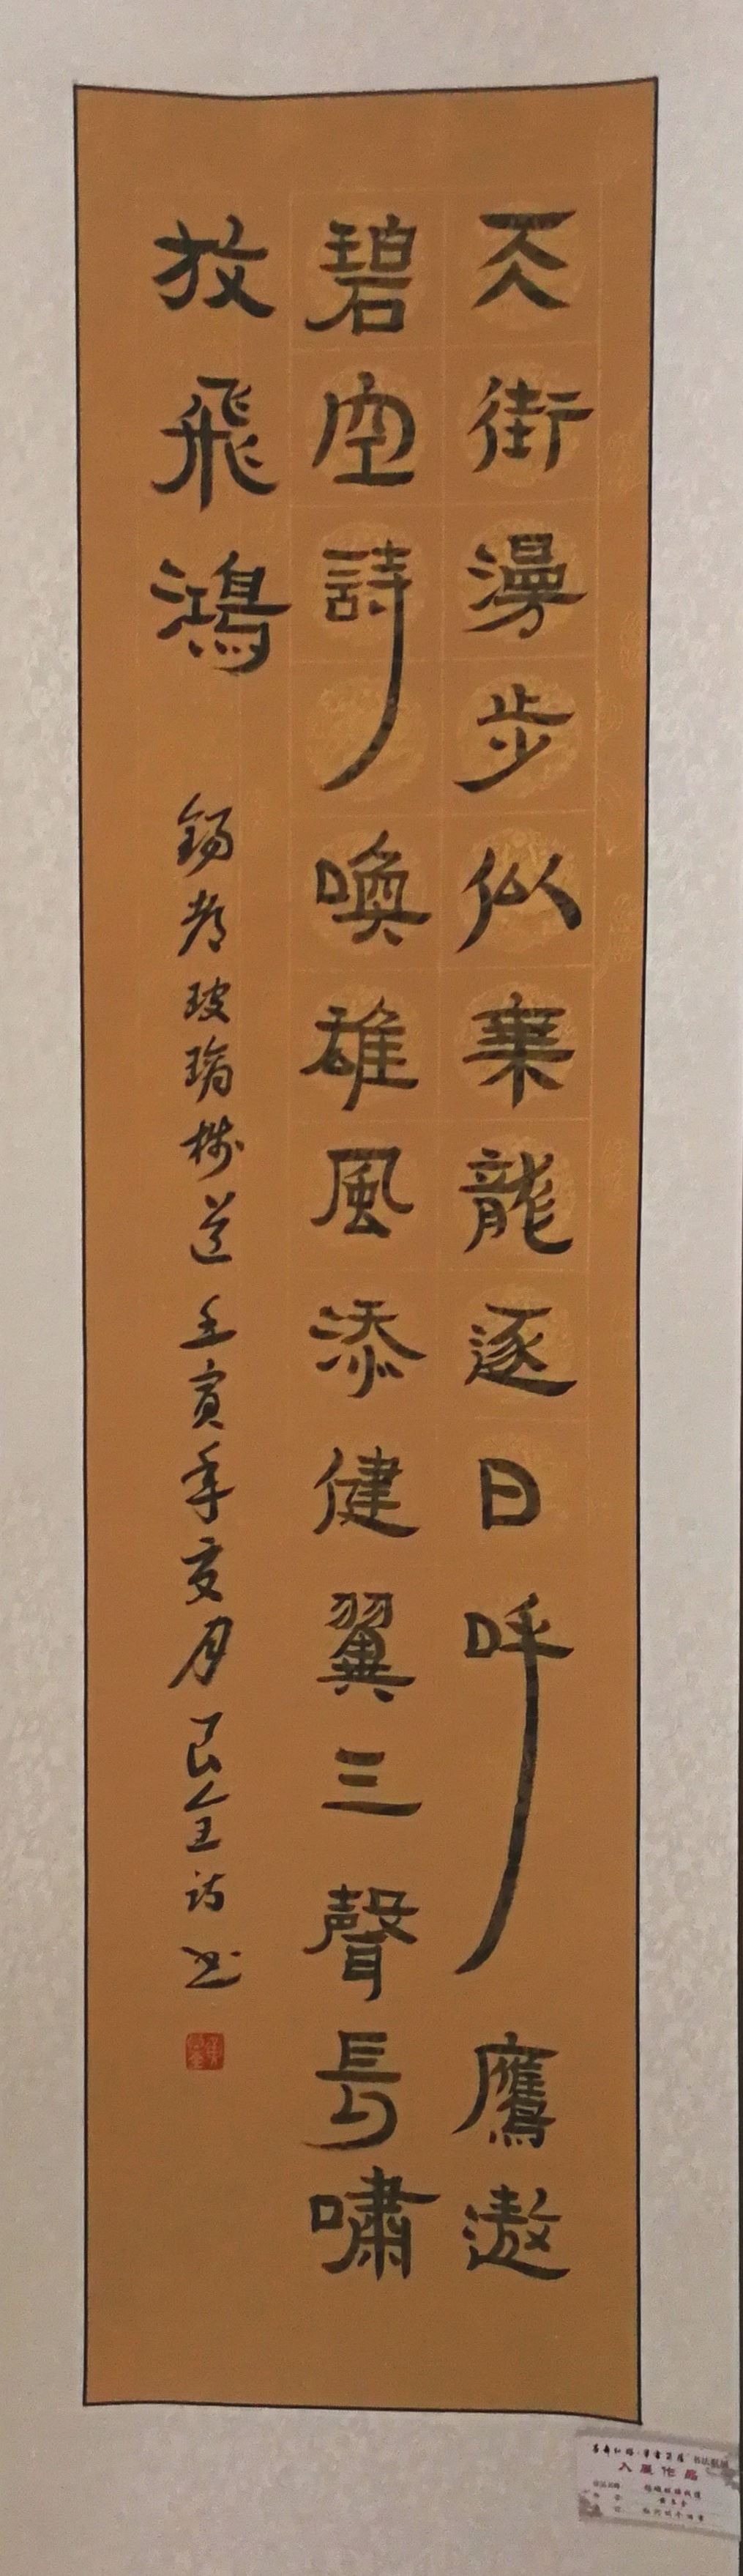 天街漫步似乘龍逐日呼鷹遨
碧空詩喚雄風添健翼三聲長嘯
放飛鴻 錫都玻璃棧道 壬寅年亥月 艮全詩書
入展作品